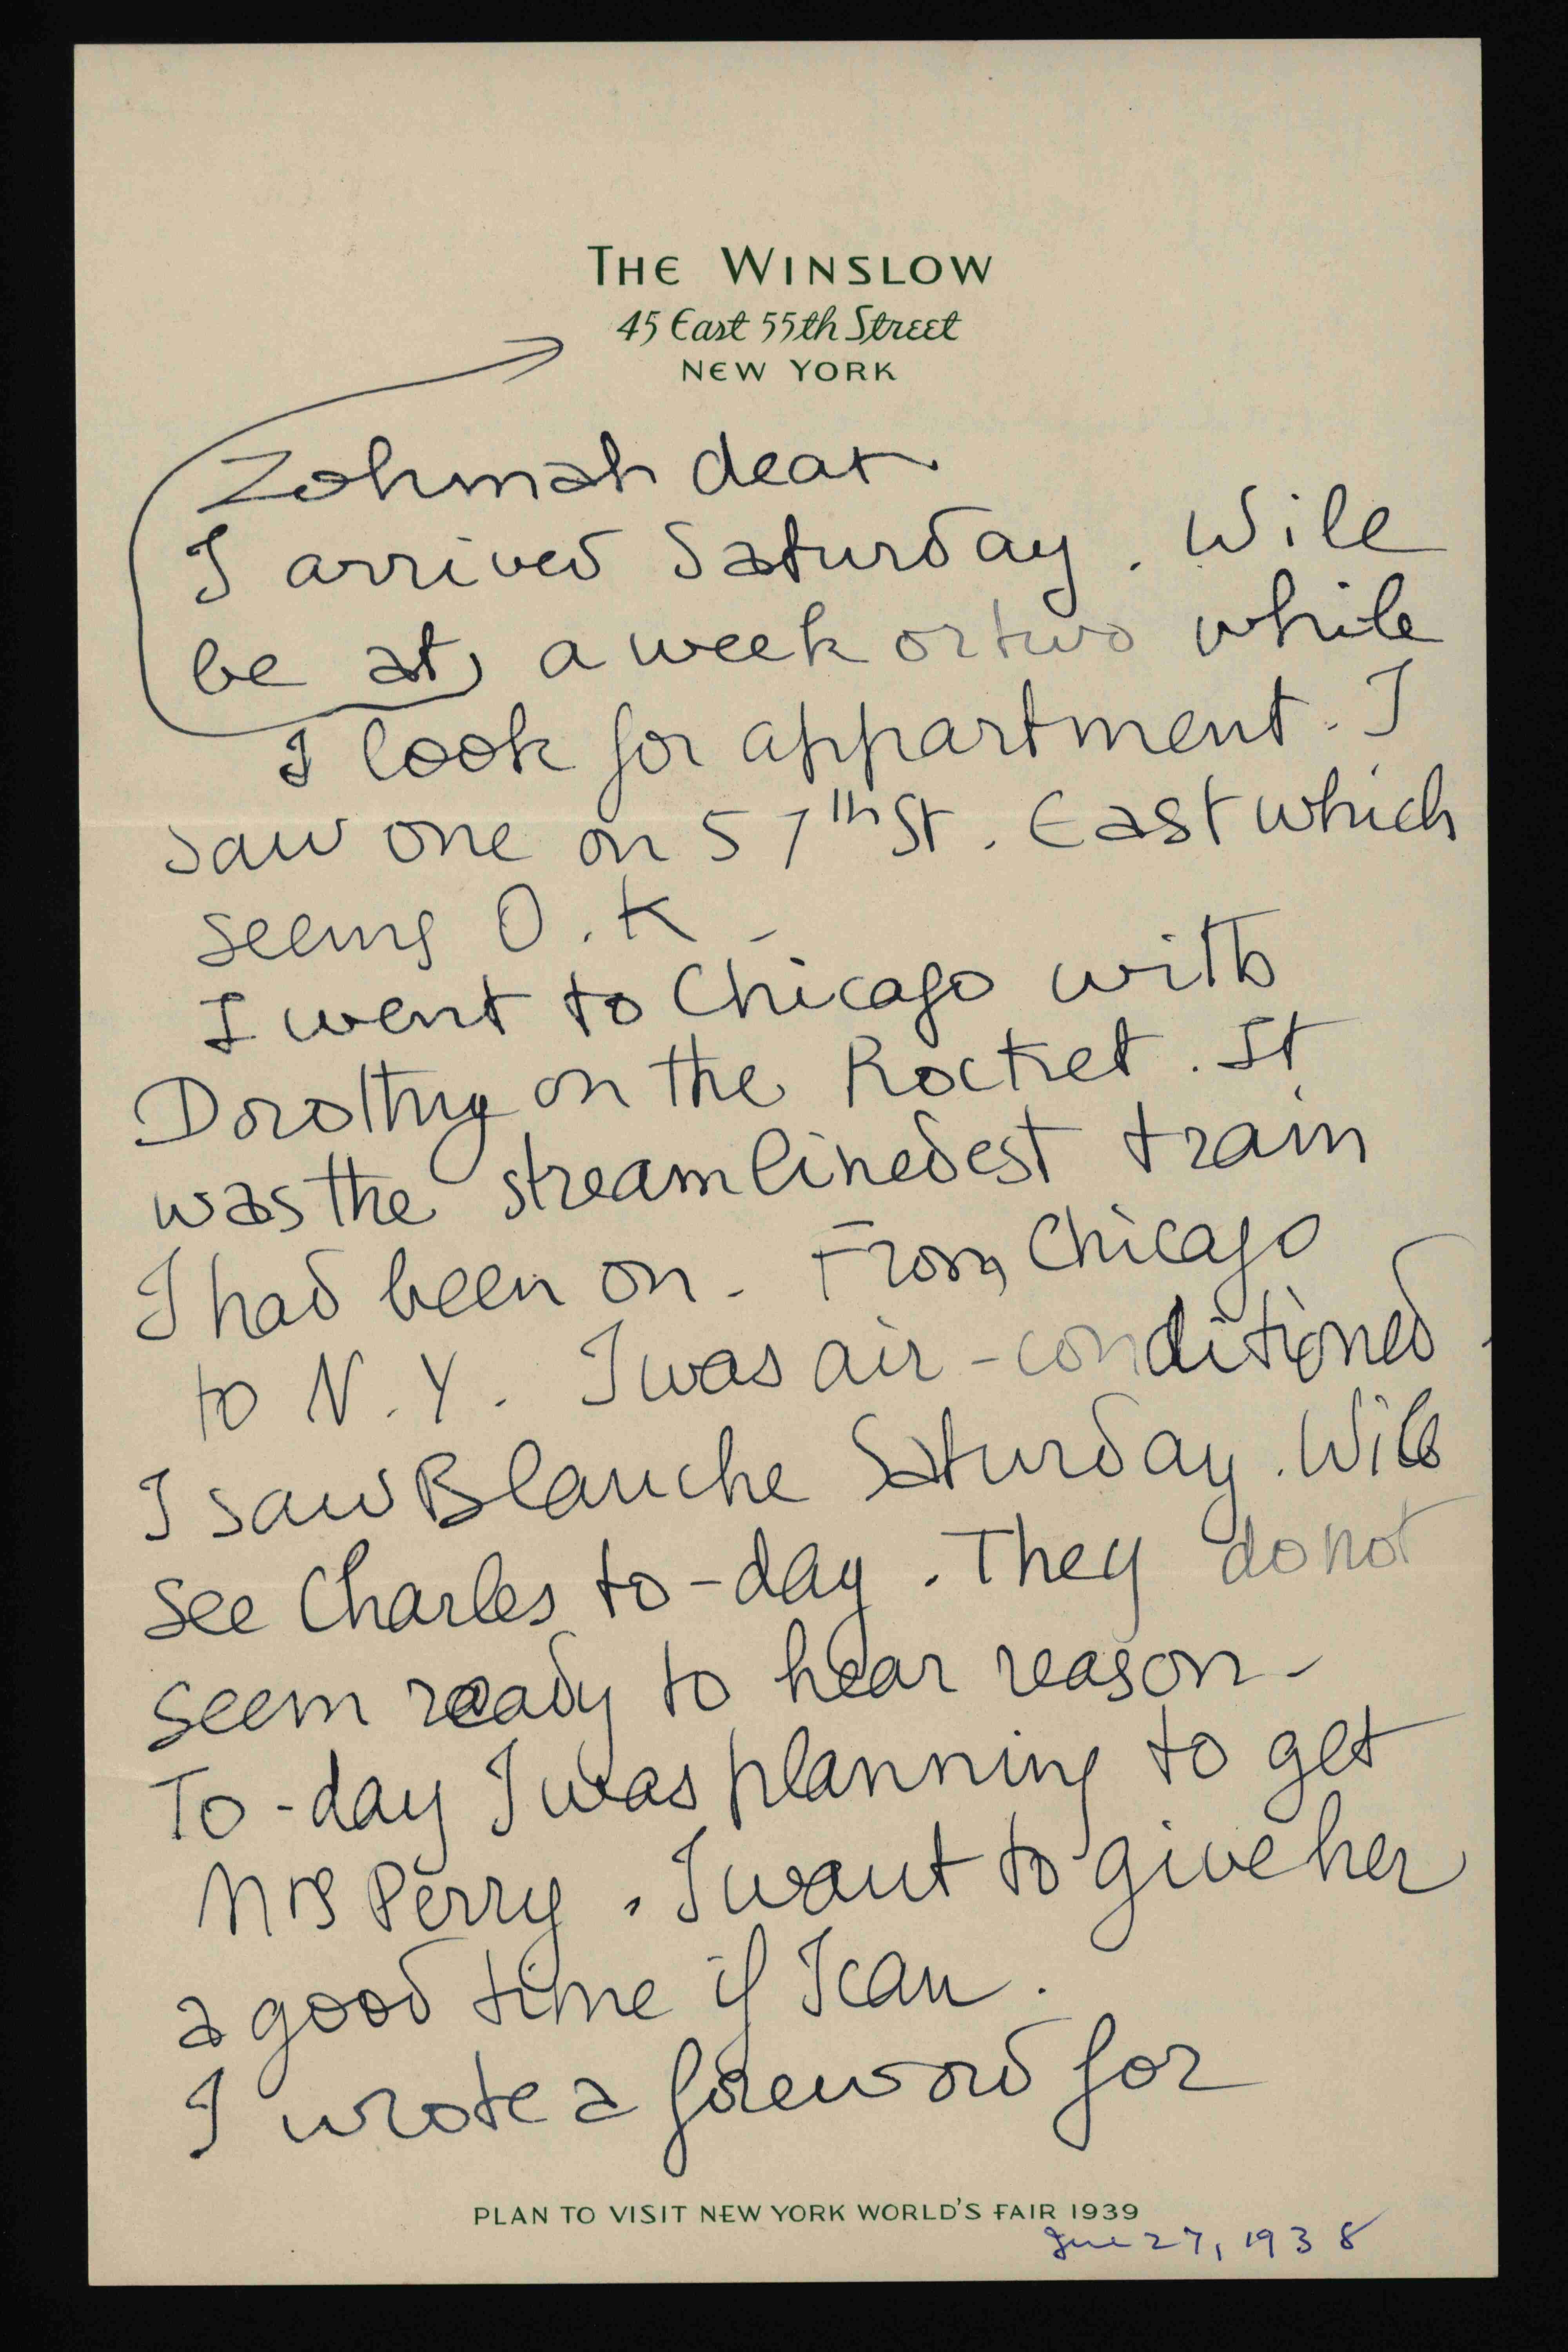 THE WINSLOW
45 East 55th Street
NEW YORK
Zohmah dear
I arrived Saturday. Will
be at a week or two while
I look for appartment. I
saw one on 57th St. East which
seems O.K.
I went to Chicago with
Dorothy on the Rocket. It
was the streamlinedest train
I had been on. From Chicago
to N.Y. I was air-conditioned.
I saw Blanche Saturday. Will
see Charles to-day. They do not
seem ready to hear reason-
To-day I was planning to get
Mrs Perry. I want to give her
a good time if I can.
I wrote a foreword for
PLAN TO VISIT NEW YORK WORLD'S FAIR 1939
June 27, 1938